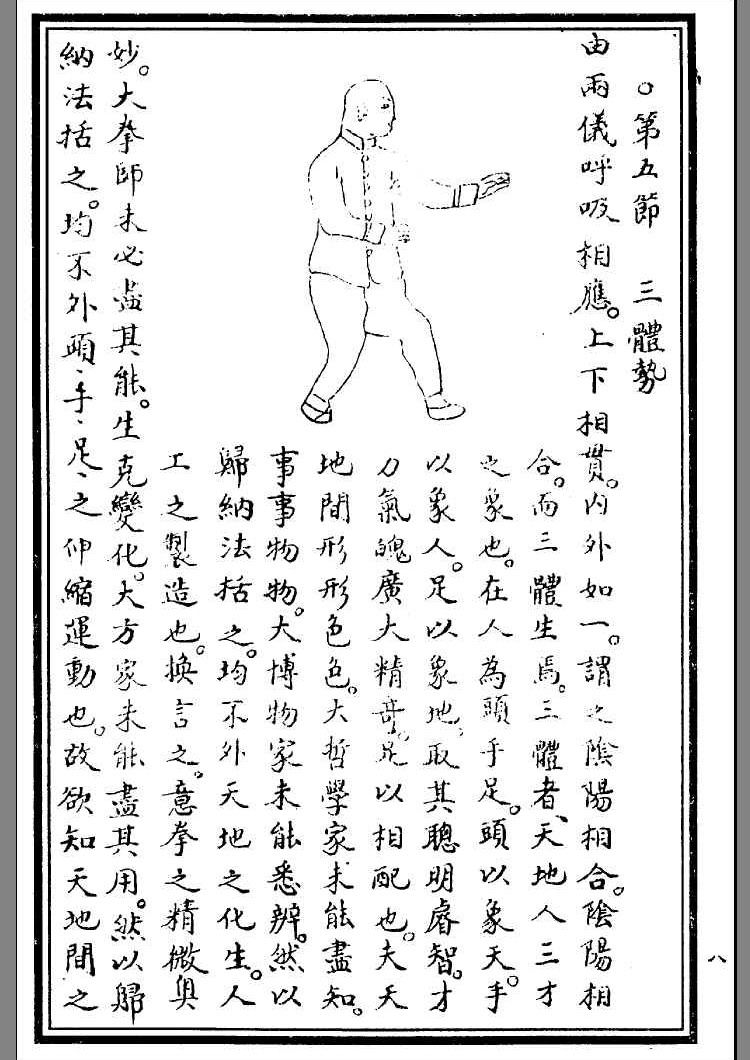 ○第五節　三體勢
由兩儀呼吸相應。上下相貫。內外如一。謂之陰陽相合。陰陽相
合。而三體生焉。三體者、天地人三才
之象也。在人為頭手足。頭以象天。手
以象人。足以象地。取其聰明睿智。才
力氣魄廣大精奇。足以相配也。夫天
地間形形色色。大哲學家未能盡知。
事事物物。大博物家未能悉辨。然以
歸納法括之。均不外天地之化生。人
工之製造也。換言之。意拳之精微奧
妙。大拳師未必盡其能。生克變化。大方家未能盡其用。然以歸
納法括之。均不外頭、手、足、之伸縮運動也。故欲知天地間之
八